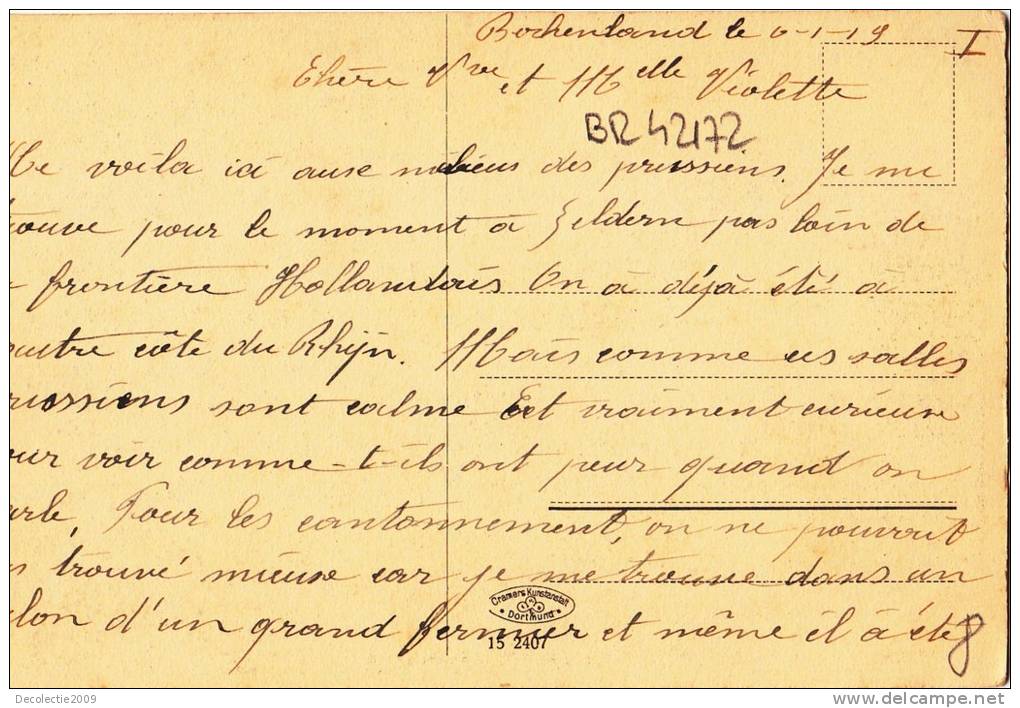 Bochenland le 6-1-19
I
Chère Vve et Melle Violette
BR 42172
Me voila ici ause milieus des prussiens. Je me
trouve pour le moment à Geldern pas loin de
frontière Hollandais On à déjà été à
autre côte du Rhijn. Mais comme ces salles
russiens sont calme Est vraiment curieuse
our voir comme-t-ils ont peur quand on
arle. Pour les cantonnement, on ne pouvait
s trouvé mieuse car je me trouve dans un
lon d'un grand fermier et même il à été
8
Cramers Kunstanstalt
Dortmund
15 2407
Decolectie2009
delcampe.net